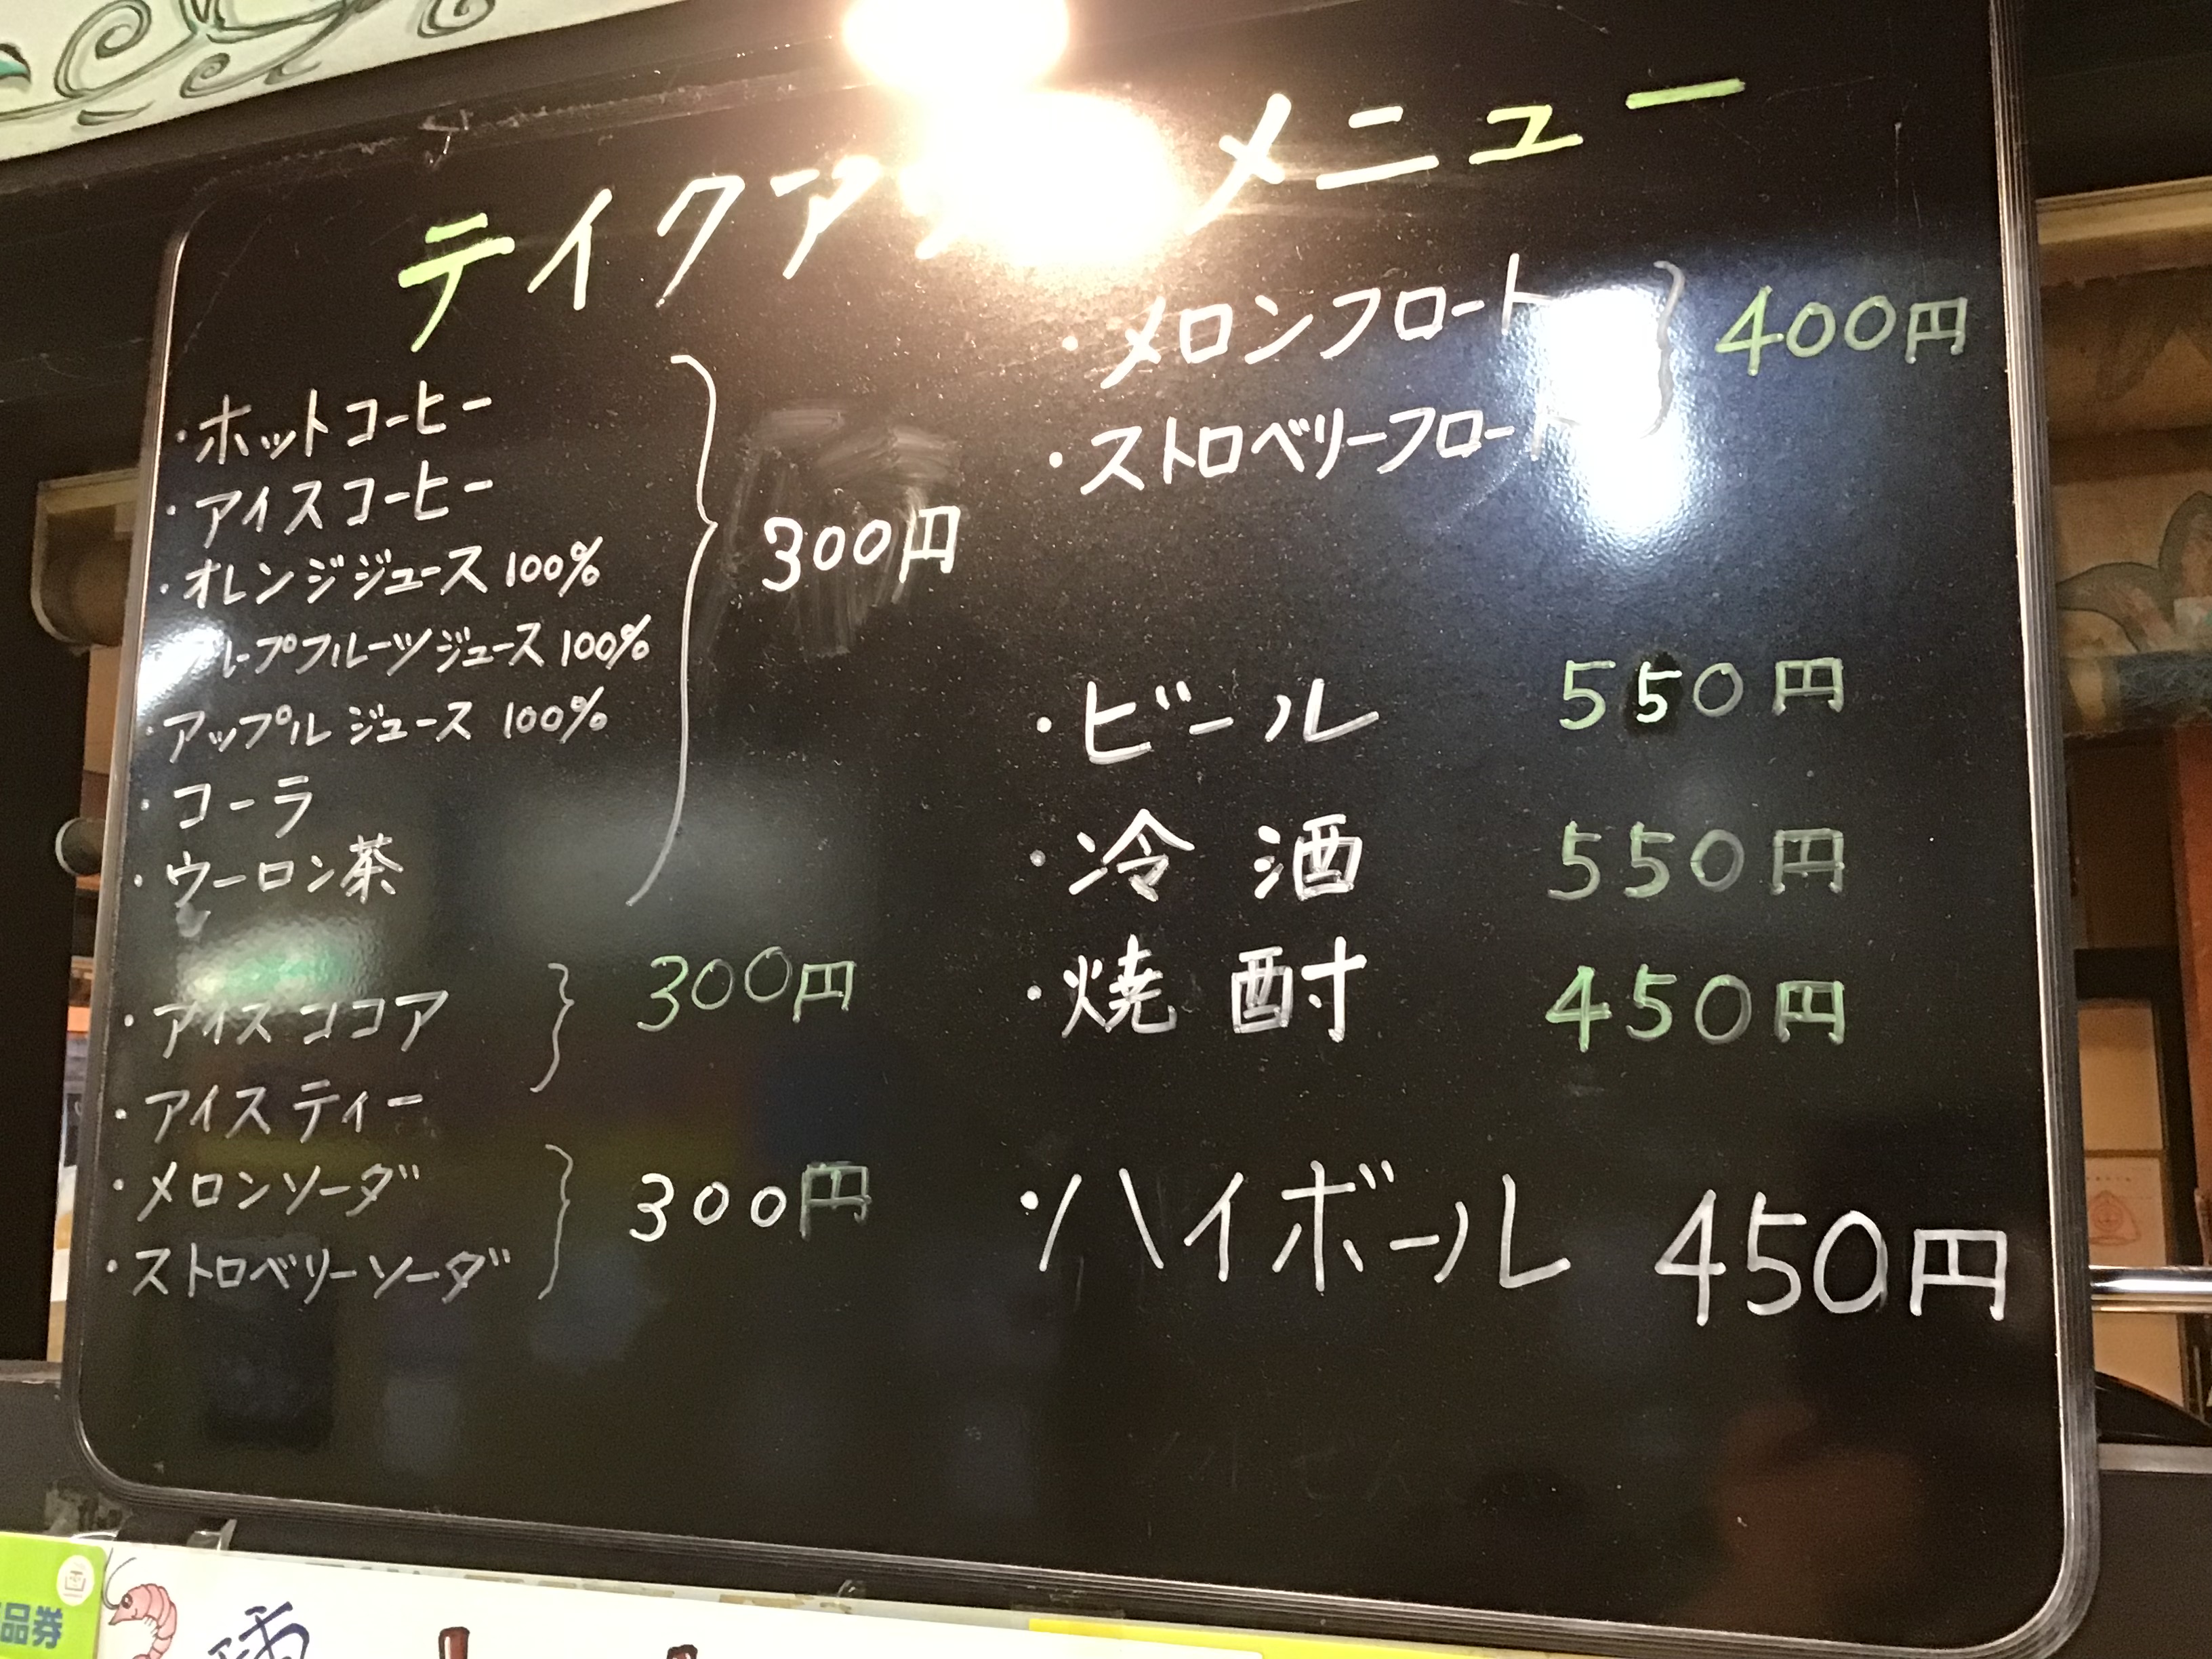 テイクア メニュー
・ホットコーヒー
・アイスコーヒー
・オレンジジュース 100%
レープフルーツジュース 100%
・アップルジュース 100%
・コーラ
・ウーロン茶
300円
・アイスココア
・アイスティー
300円
・メロンソーダ
・ストロベリーソーダ
300円
・メロンフロート
・ストロベリーフロート
400円
・ビール 550円
・冷酒 550円
・焼酎 450円
・ハイボール 450円
品券